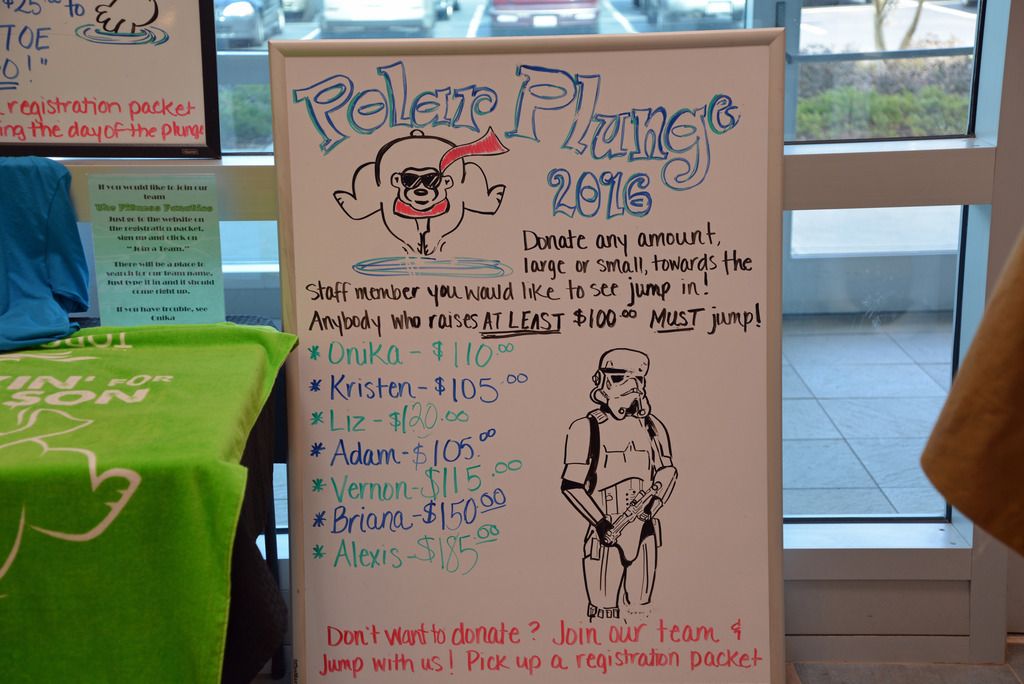 $25 to
TOE
O!"
registration packet
ing the day of the plunge
If you would like to join our
team
The Fitness Fanatics
Just go to the website on
the registration packet,
sign up and click on
"Join a Team."
There will be a place to
search for our team name,
Just type it in and it should
come right up.
If you have trouble, see
Onika
IN' FOR
SON
Polar Plunge
2016
Donate any amount,
large or small, towards the
Staff member you would like to see jump in!
Anybody who raises AT LEAST $100.00 MUST jump!
* Onika - $110.00
* Kristen - $105.00
* Liz - $120.00
* Adam - $105.00
* Vernon - $115.00
* Briana - $150.00
* Alexis - $185.00
Don't want to donate? Join our team &
Jump with us! Pick up a registration packet